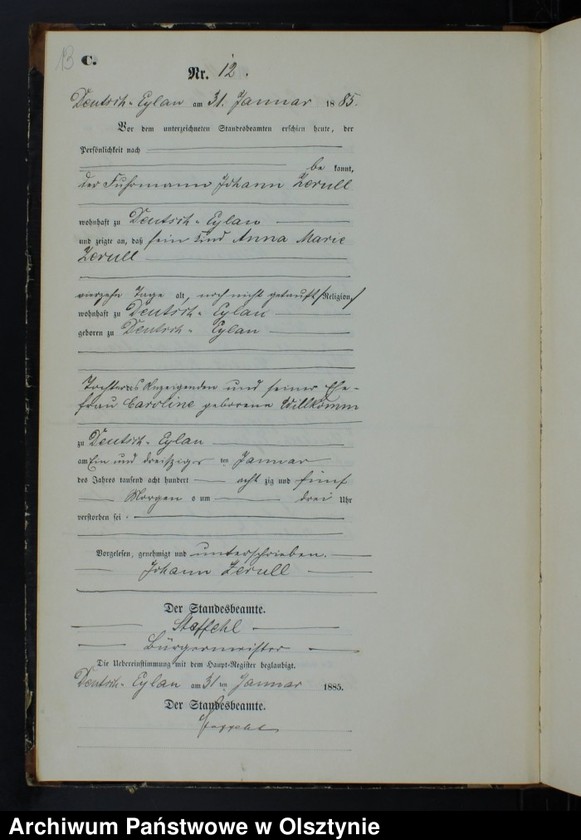 13 C.
Nr. 12.
Deutsch-Eylau am 31. Januar 1885.
Vor dem unterzeichneten Standesbeamten erschien heute, der
Persönlichkeit nach
be kannt,
der Fuhrmann Johann Zerull
wohnhaft zu Deutsch-Eylau
und zeigte an, daß sein Kind Anna Marie
Zerull
vierzehn Tage alt, noch nicht getauft /Religion,/
wohnhaft zu Deutsch-Eylau
geboren zu Deutsch-Eylau
Tochter des Anzeigenden und seiner Ehe-
frau Caroline geborene Willkomm
zu Deutsch-Eylau
am Ein und dreißigs ten Januar
des Jahres tausend acht hundert acht zig und fünf
Morgen s um drei Uhr
verstorben sei.
Vorgelesen, genehmigt und unterschrieben.
Johann Zerull
Der Standesbeamte.
Staffehl
Bürgermeister
Die Uebereinstimmung mit dem Haupt-Register beglaubigt.
Deutsch-Eylau am 31 ten Januar 1885.
Der Standesbeamte.
Staffehl
Archiwum Państwowe w Olsztynie